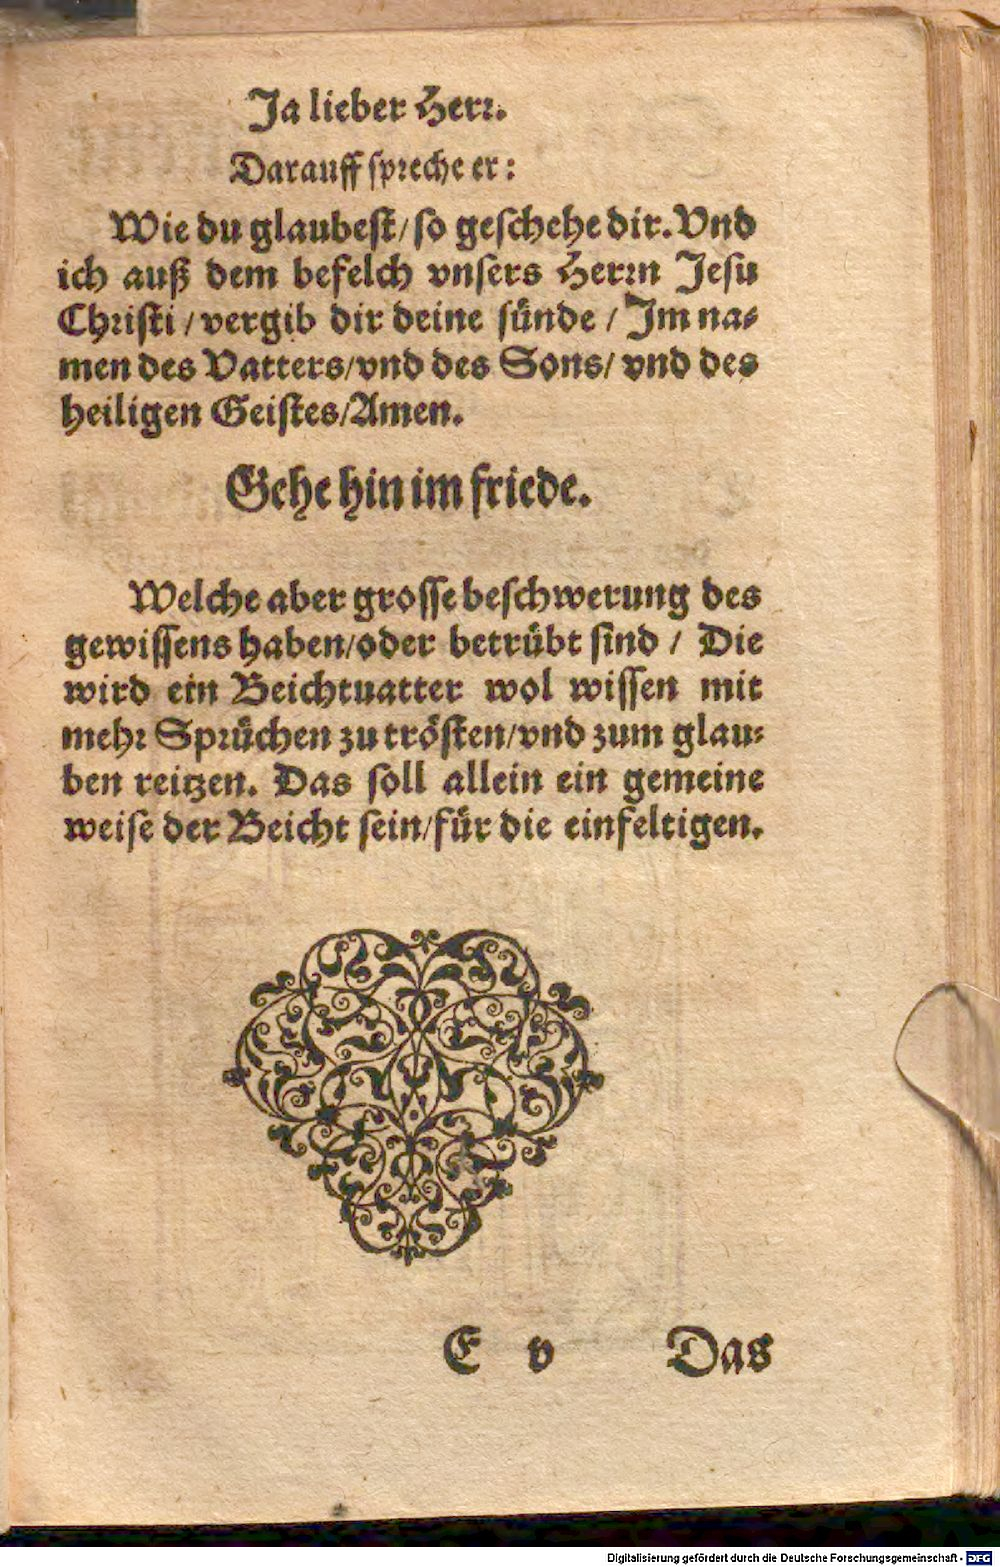 Ja lieber Herr.
Darauff spreche er:
Wie du glaubest/ so geschehe dir. Vnd
ich auß dem befelch vnsers Herrn Jesu
Christi / vergib dir deine sünde / Im na-
men des Vatters/ vnd des Sons/ vnd des
heiligen Geistes/ Amen.
Gehe hin im friede.
Welche aber grosse beschwerung des
gewissens haben/ oder betrübt sind / Die
wird ein Beichtuatter wol wissen mit
mehr Sprüchen zu trösten/ vnd zum glau-
ben reitzen. Das soll allein ein gemeine
weise der Beicht sein/ für die einfeltigen.
E v Das
Digitalisierung gefördert durch die Deutsche Forschungsgemeinschaft - DFG